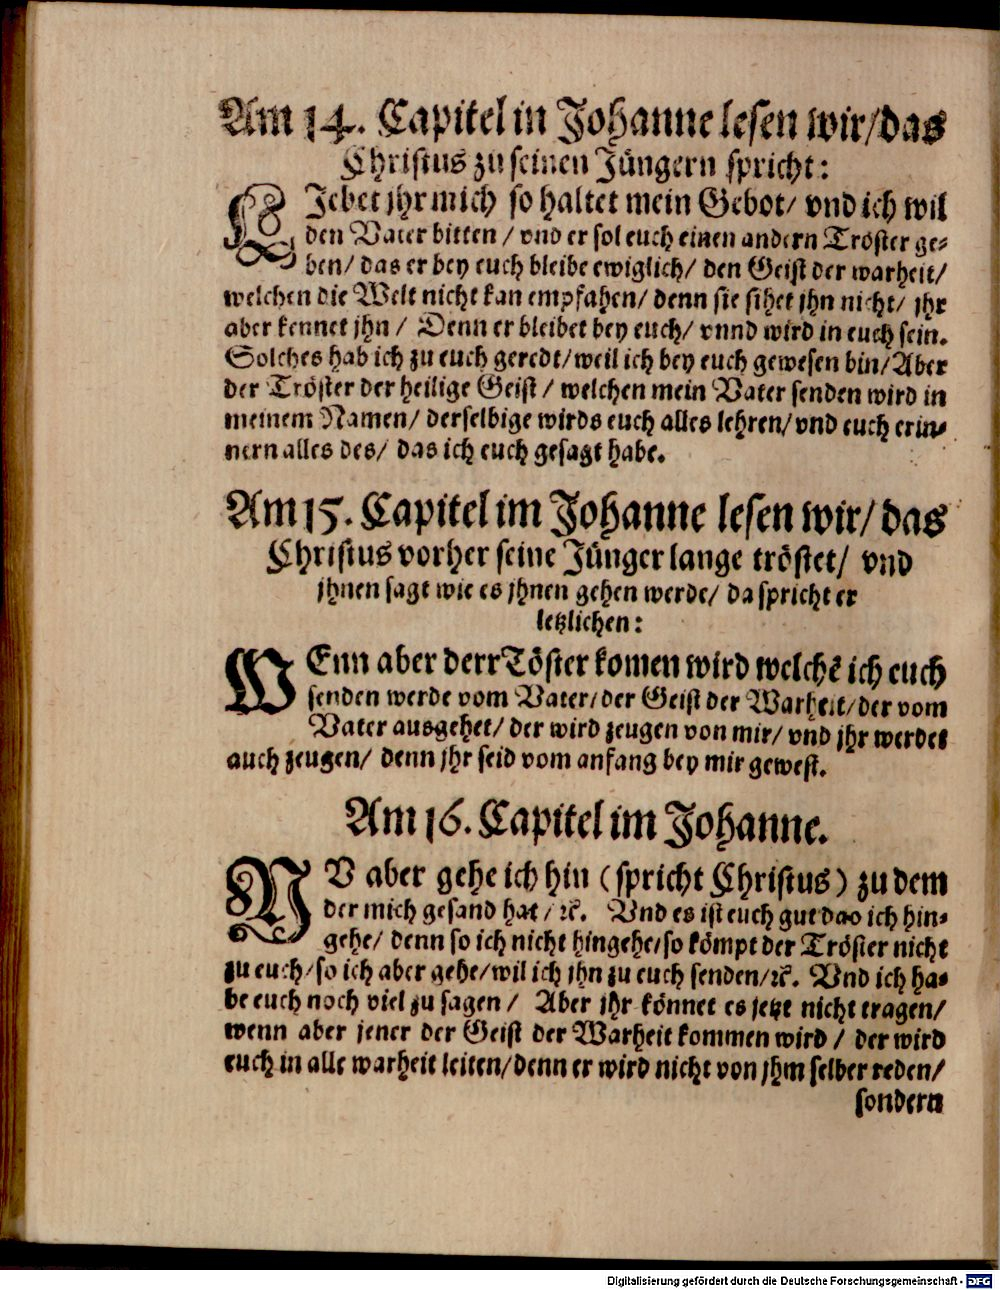 Am 14. Capitel in Johanne lesen wir/das
Christus zu seinen Jüngern spricht:
LJebet jhr mich so haltet mein Gebot/ vnd ich wil
den Vater bitten / vnd er sol euch einen andern Tröster ge-
ben/ das er bey euch bleibe ewiglich/ den Geist der warheit/
welchen die Welt nicht kan empfahen/ denn sie sihet jhn nicht/ jhr
aber kennet jhn / Denn er bleibet bey euch/ vnnd wird in euch sein.
Solches hab ich zu euch geredt/weil ich bey euch gewesen bin/Aber
der Tröster der heilige Geist / welchen mein Vater senden wird in
meinem Namen/ derselbige wirds euch alles lehren/vnd euch erin-
nern alles des/ das ich euch gesagt habe.
Am 15. Capitel im Johanne lesen wir/ das
Christus vorher seine Jünger lange tröstet/ vnd
jhnen sagt wie es jhnen gehen werde/ da spricht er
letzlichen:
WEnn aber derr Töster komen wird welchē ich euch
senden werde vom Vater/der Geist der Warheit/der vom
Vater ausgehet/ der wird zeugen von mir/ vnd jhr werdet
auch zeugen/ denn jhr seid vom anfang bey mir gewest.
Am 16. Capitel im Johanne.
NV aber gehe ich hin (spricht Christus) zu dem
der mich gesand hat / ꝛc. Vnd es ist euch gut das ich hin-
gehe/ denn so ich nicht hingehe/so kömpt der Tröster nicht
zu euch/so ich aber gehe/wil ich jhn zu euch senden/ꝛc. Vnd ich ha-
be euch noch viel zu sagen / Aber jhr könnet es jetzt nicht tragen/
wenn aber jener der Geist der Warheit kommen wird / der wird
euch in alle warheit leiten/denn er wird nicht von jhm selber reden/
sondern
Digitalisierung gefördert durch die Deutsche Forschungsgemeinschaft - DFG